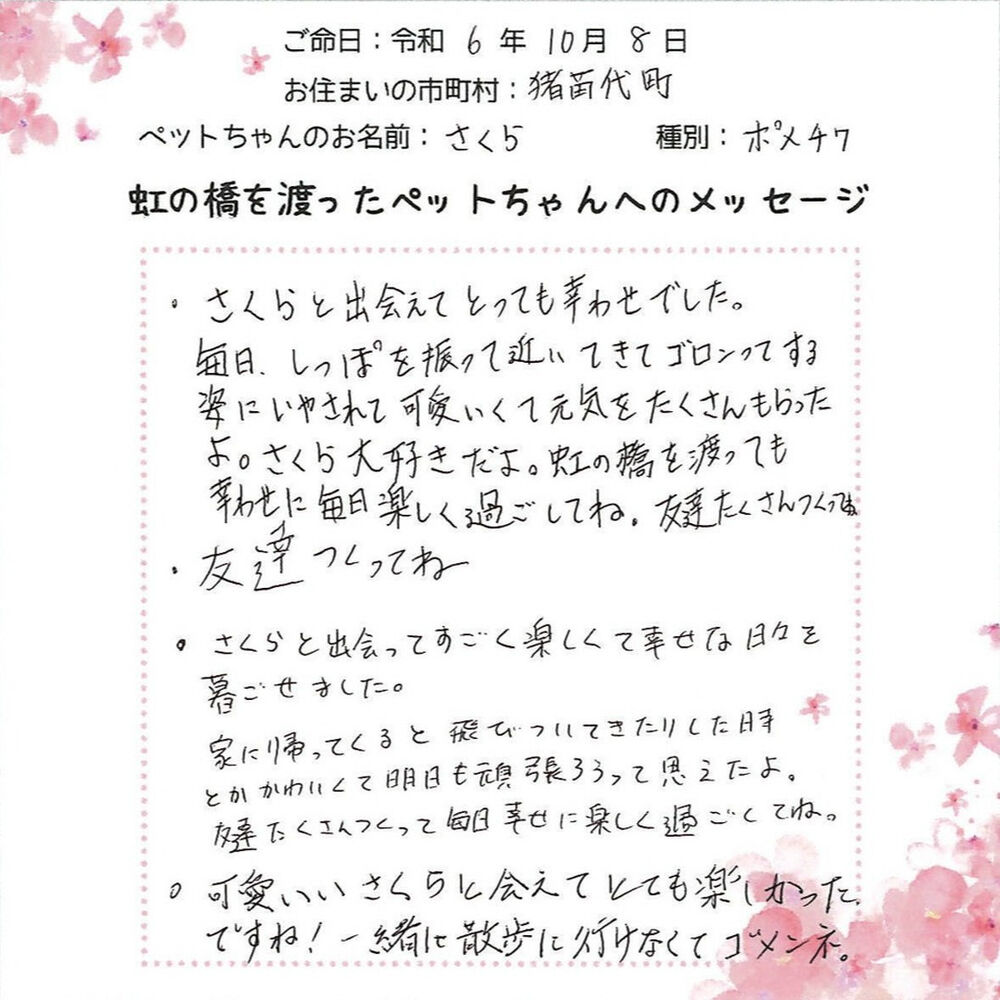 ご命日：令和 6 年 10月 8 日
お住まいの市町村：猪苗代町
ペットちゃんのお名前：さくら 種別：ポメチワ
虹の橋を渡ったペットちゃんへのメッセージ
・さくらと出会えてとっても幸わせでした。
毎日、しっぽを振って近いてきてゴロンってする
姿にいやされて可愛いくて元気をたくさんもらった
よ。さくら大好きだよ。虹の橋を渡っても
幸わせに毎日楽しく過ごしてね。友達たくさんつくってね
・友達つくってね
・さくらと出会ってすごく楽しくて幸せな日々を
暮ごせました。
家に帰ってくると飛びついてきたりした時
とかかわいくて明日も頑張ろうって思えたよ。
友達たくさんつくって毎日幸せに楽しく過ごしてね。
・可愛いいさくらと会えてとても楽しかった
ですね！一緒に散歩に行けなくてゴメンネ。